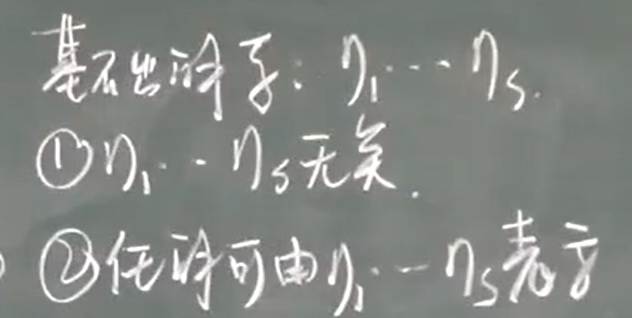 基础解系: η₁…ηₛ.
①η₁…ηₛ无关.
②任解可由η₁…ηₛ表示